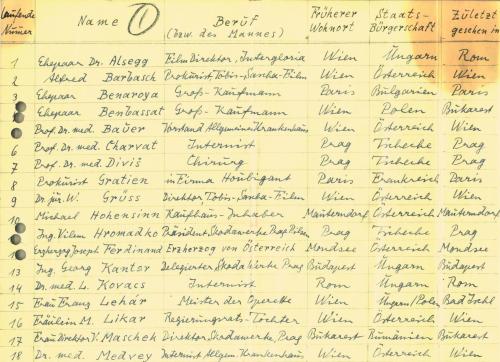 Laufende Numer Name 1 Beruf (bzw. des Mannes) Früherer Wohnort Staats-Bürgerschaft Zuletzt gesehen in
1 Ehepaar Dr. Alsegg Film Direktor, Intergloria Wien Ungarn Rom
2 Alfred Barbasch Prokurist Tobis-Sascha-Film Wien Österreich Wien
3 Ehepaar Benaroya Groß-Kaufmann Paris Bulgarien Paris
Ehepaar Benbassat Groß-Kaufmann Wien Polen Bukarest
Prof. Dr. med. Bauer Vorstand Allgemeine Krankenhaus Wien Österreich Wien
6 Prof. Dr. med. Charvat Internist Prag Tscheche Prag
7 Prof. Dr. med. Diviš Chirurg Prag Tscheche Prag
8 Prokurist Gratien in Firma Houbigant Paris Frankreich Paris
9 Dr. jur. W. Grüss Direktor Tobis-Sascha-Film Wien Österreich Wien
10 Michael Hohensinn Kaufhaus-Inhaber Mauterndorf Österreich Mauterndorf
Ing. Vilem Hromadko Präsident Skodawerke Prag Pilsen Prag Tscheche Prag
12 Erzherzog Joseph Ferdinand Erzherzog von Österreich Mondsee Österreich Mondsee
13 Ing. Georg Kantor Delegierter Skoda Werke Prag Budapest Ungarn Budapest
14 Dr. med. L. Kovacs Internist Rom Ungarn Rom
15 Frau Franz Lehár Meister der Operette Wien Ungarn/Polen Bad Ischl
16 Fräulein M. Likar Regierungsrats-Tochter Wien Österreich Wien
17 Frau Direktor V. Maschek Direktor Skodawerke, Prag Bukarest Rumänien Bukarest
18 Dr. med. Medvey Internist Allgem. Krankenhaus Wien Österreich Wien